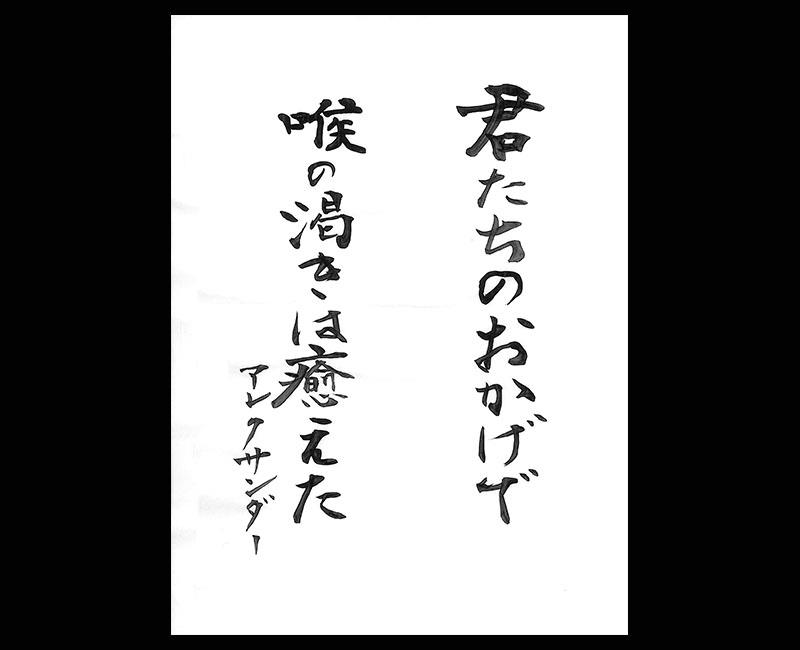 君たちのおかげで
喉の渇きは癒えた
アレクサンダー